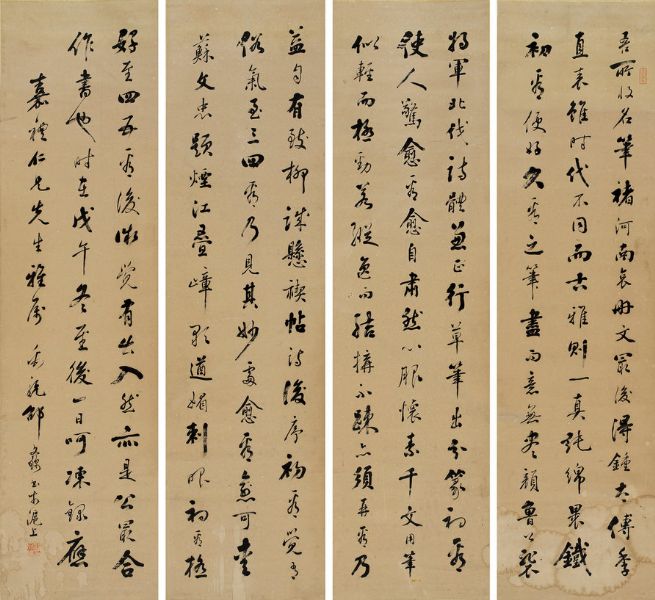 吾所收名筆褚河南哀冊文最後得鍾太傅季
直表雖時代不同而古雅則一真純綿裹鐵
初看便好久看之筆盡而意無盡顏魯公裴
將軍北伐詩體兼正行草筆出分篆初看
使人驚愈看愈自肅然心服懷素千文用筆
似輕而極勁若縱逸而結構不疎亦須再看乃
益自有致柳誠懸禊帖詩後序初看覺有
俗氣至三四看乃見其妙處愈看愈可愛
蘇文忠題煙江疊嶂歌遒媚刺眼初看極
好至四五看後微覺有出入然亦是公最合
作書也時在戊午冬至後一日呵凍錄應
嘉禮仁兄先生雅屬 邵 書於滬上